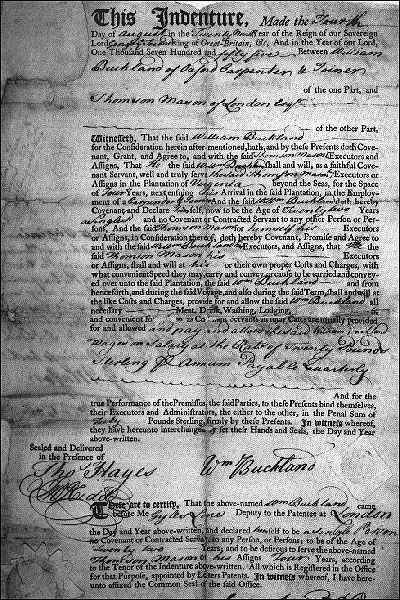 This Indenture, Made the Fourth
Day of August in the Twenty Year of the Reign of our Sovereign
Lord George King of Great-Britain, &c. And in the Year of our Lord,
One Thousand Seven Hundred and fifty five Between William
Buckland of Oxford Carpenter & Joiner
of the one Part, and
Thomson Mason of London Esqr.
of the other Part,
Witnesseth, That the said William Buckland
for the Consideration herein after-mentioned, hath, and by these Presents doth Cove-
nant, Grant, and Agree to, and with the said Thomson Mason Executors and
Assigns, That He the said Wm Buckland shall and will, as a faithful Cove-
nant Servant, well and truly serve the said Thomson Mason Executors or
Assigns in the Plantation of Virginia beyond the Seas, for the Space
of Four Years, next ensuing his Arrival in the said Plantation, in the Employ-
ment of a Carpenter & Joiner And the said Wm Buckland doth hereby
Covenant and Declare himself, now to be the Age of Twenty two Years
and no Covenant or Contracted Servant to any other Person or Per-
sons, And the said Thomson Mason himself his Executors
or Assigns, in Consideration thereof, doth hereby Covenant, Promise and Agree to
and with the said Wm Buckland his Executors, and Assigns, that He the
said Thomson Mason his Executors
or Assigns, shall and will at his or their own proper Costs and Charges, with
what convenient Speed they may, carry and convey, or cause to be carried and convey-
ed over unto the said Plantation, the said Wm Buckland and from
henceforth, and during the said Voyage, and also during the said Term, shall and will at
the like Costs and Charges, provide for and allow the said Wm Buckland all
necessary Meat, Drink, Washing, Lodging,
and convenient for him as Covenant Servants in such Cases are usually provided
for and allowed and pay and allow the said William Buckland
Wages or Salary at the Rate of Twenty Pounds
Sterling P Annum Payable Quarterly
And for the
true Performance of the Premisses, the said Parties, to these Presents bind themselves,
their Executors and Administrators, the either to the other, in the Penal Sum of
Forty Pounds Sterling, firmly by these Presents. In witness whereof,
they have hereunto interchangeably set their Hands and Seals, the Day and Year
above-written.
Sealed and Delivered
in the Presence of
Thos Hayes
Wm Buckland
These are to certify, That the above-named Wm Buckland came
before Me Deputy to the Patentee at London
the Day and Year above-written, and declared himself to be a single Person
no Covenant or Contracted Servant to any Person, or Persons; to be of the Age of
Twenty two Years; and to be desirous to serve the above-named
Thomson Mason or his Assigns Four Years, according
to the Tenor of the Indenture above-written. All which is Registered in the Office
for that Purpose, appointed by Letters Patents. In witness whereof, I have here-
unto affixed the Common Seal of the said Office.